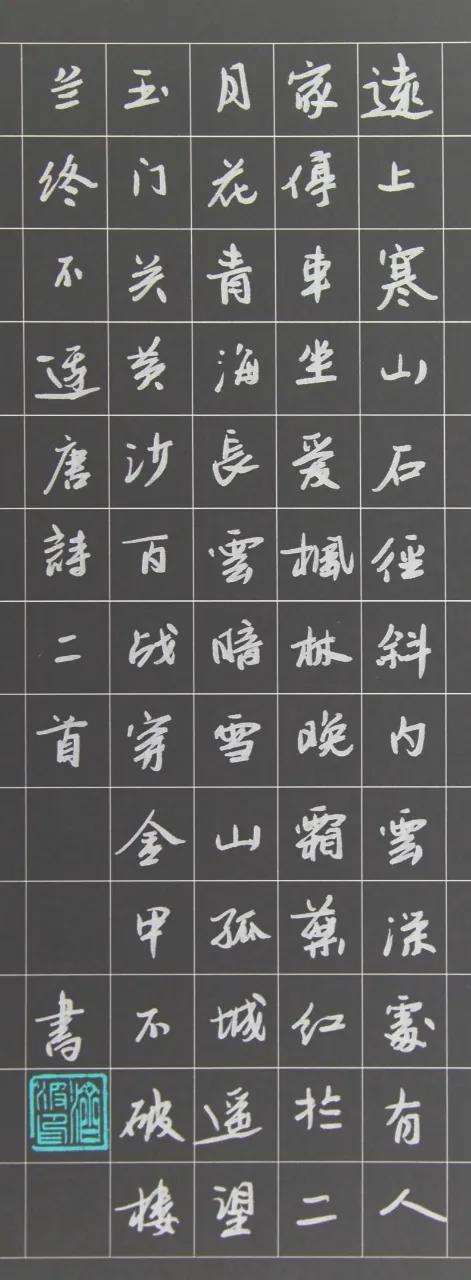 遠上寒山石徑斜内雲深處有人
家停車坐爱楓林晚霜葉红於二
月花青海長雲暗雪山孤城遥望
玉门关黄沙百战穿金甲不破楼
兰终不還唐詩二首 書